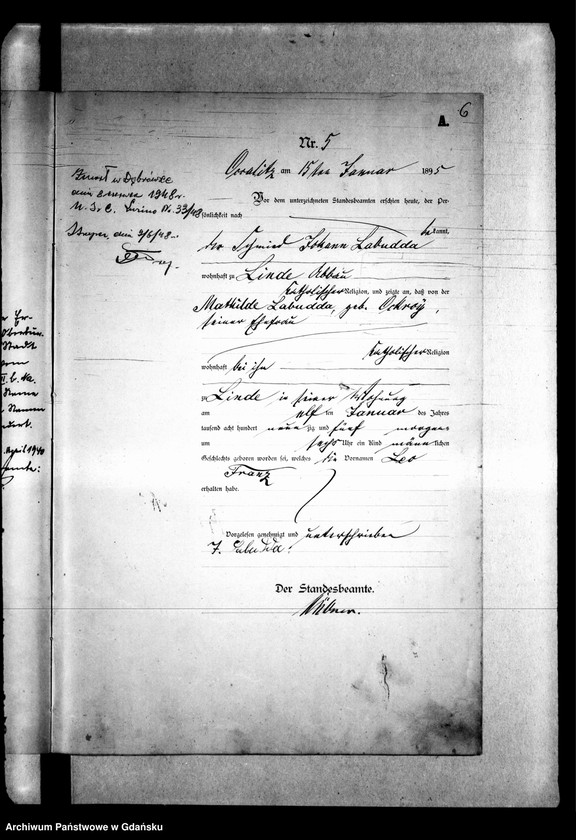 6
A.
Nr. 5
am 15ten Januar 1895
Vor dem unterzeichneten Standesbeamten erschien heute, der Per-
sönlichkeit nach
bekannt,
der Schmied Johann Labudda
wohnhaft zu Linde Abbau
katholischer Religion, und zeigte an, daß von der
Mathilde Labudda, geb.
seiner Ehefrau
katholischer Religion
wohnhaft bei ihm
zu Linde in seiner Wohnung
am elf ten Januar des Jahres
tausend acht hundert neun zig und fünf morgens
um sechs Uhr ein Kind männ lichen
Geschlechts geboren worden sei, welches die Vornamen Leo
Franz
erhalten habe.
Vorgelesen genehmigt und unterschrieben
J. Labudda.
Der Standesbeamte.
1948r.
U.S.C. No. 33/48
dnia 3/6/48
Stadt
Namen
April 1940
Archiwum Państwowe w Gdańsku